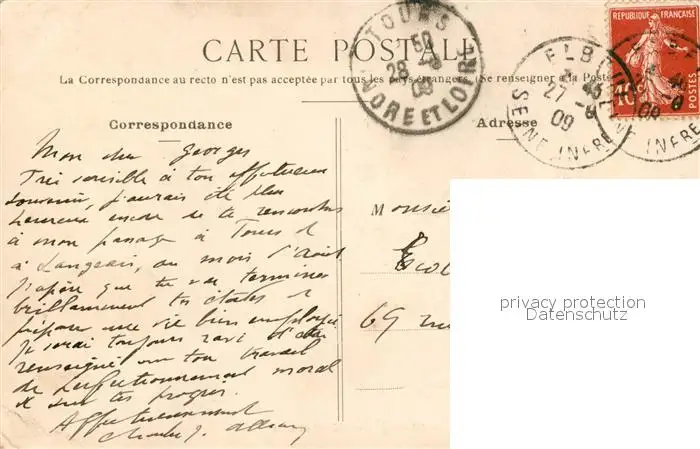 TOURS
28 - 8
09
INDRE ET LOIRE
ELBEUF
27 - 8
09
SEINE INFRE
REPUBLIQUE FRANÇAISE
10c
POSTES
CARTE POSTALE
La Correspondance au recto n'est pas acceptée par tous les pays étrangers. (Se renseigner à la Poste
Correspondance
Adresse
Mon cher Georges
Très sensible à ton affectueux
souvenir, j'aurais été plus
heureux encore de te rencontrer
à mon passage à Tours &
à Langeais, au mois d'Août
que tu vas terminer
brillamment tes études &
préparer une vie bien employée
Je serai toujours ravi d'être
renseigné sur ton travail
de perfectionnement moral
& sur tes progrès.
Affectueusement
Monsie
69 rue
privacy protection
Datenschutz